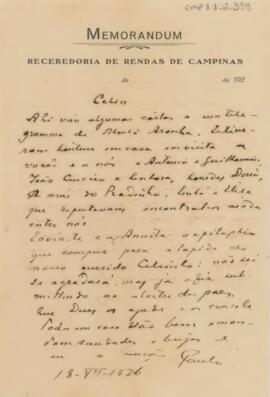 CMP 1.1.2.339
MEMORANDUM
RECEBEDORIA DE RENDAS DE CAMPINAS
de de 192
Celso
Ahi vão algumas cartas e um tele-
gramma de Aranha. Estive-
ram hontem em casa em visita a
vocês e a nós o Antonio e Guilhermina,
João e senhora,
A mãi do Pradinho, e Elisa
que encontral-os ainda
entre nós.
Envio-te e a Annita o epitaphio
que compuz para a lapide do
nosso querido Celsinho: não sei
se agradará, mas já o fiz sub-
mettendo ao dos paes.
Que Deus os ajude e os console
Todos em casa vão bem e man-
dam saudades e beijos
e a Paulo
18-VII-1926